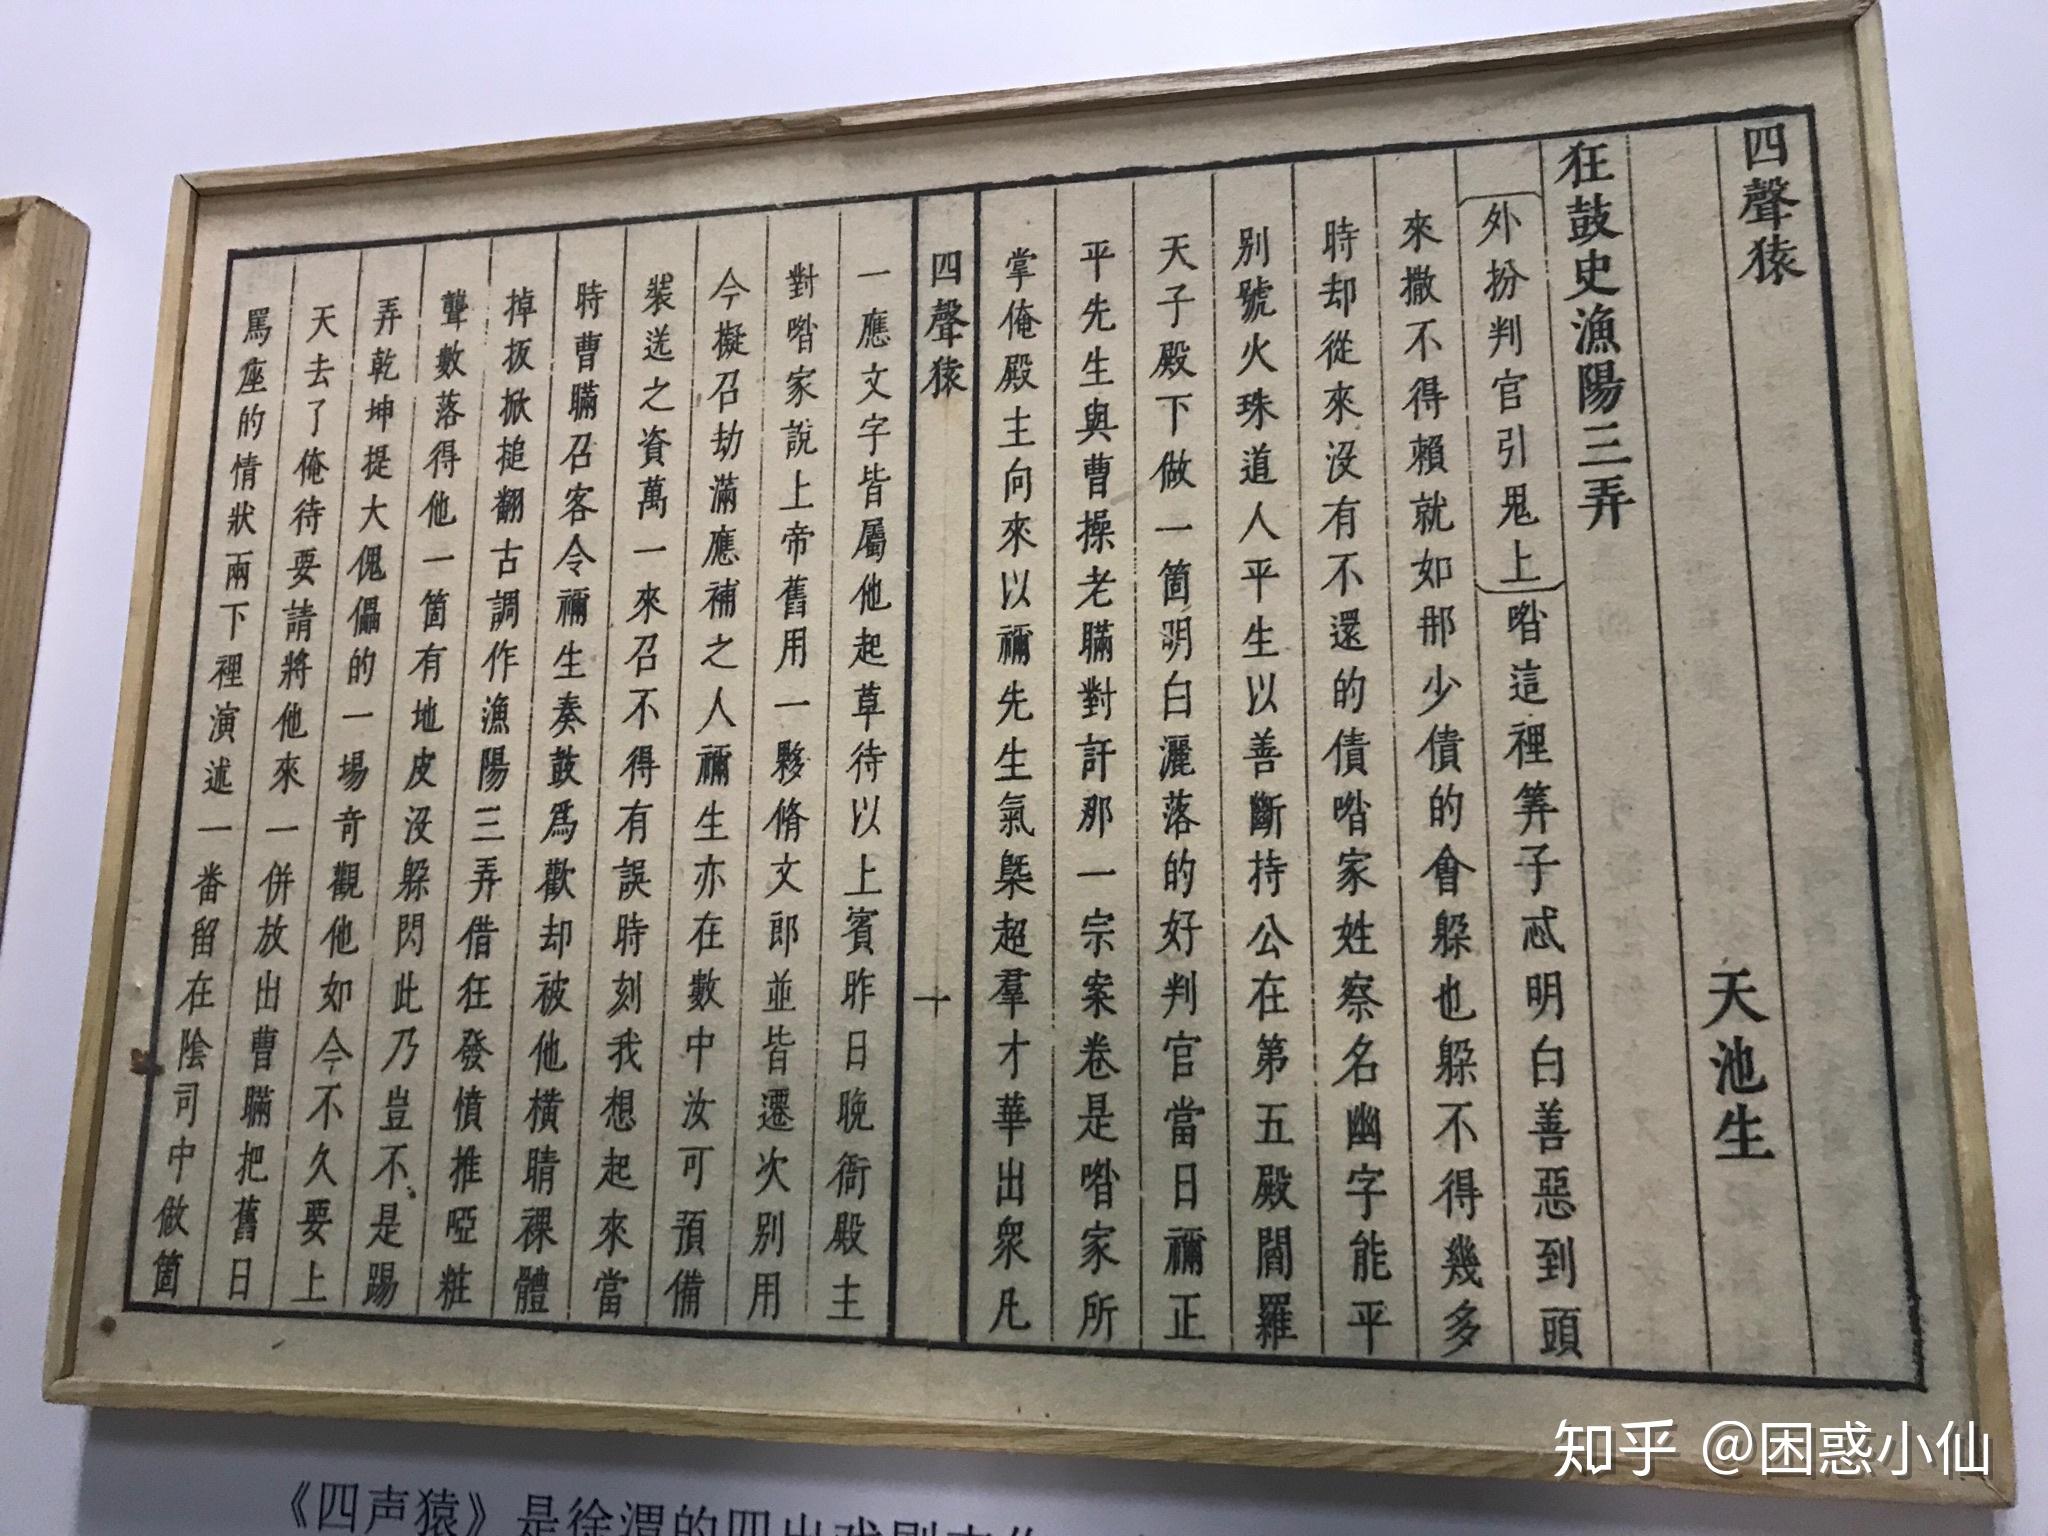 四聲猿
天池生
狂鼓史漁陽三弄
外扮判官引鬼上喒這裡筭子忒明白善惡到頭
來撒不得賴就如那少債的會躱也躱不得幾多
時却從來沒有不還的債喒家姓察名幽字能平
别號火珠道人平生以善斷持公在第五殿閻羅
天子殿下做一箇明白灑落的好判官當日禰正
平先生與曹操老瞞對訐那一宗案卷是喒家所
掌俺殿主向來以禰先生氣槩超羣才華出衆凡
四聲猿
十
一應文字皆屬他起草待以上賓昨日晚衙殿主
對喒家說上帝舊用一夥脩文郎並皆遷次别用
今擬召劫滿應補之人禰生亦在數中汝可預備
裝送之資萬一來召不得有誤時刻我想起來當
時曹瞞召客令禰生奏鼓爲歡却被他橫睛裸體
掉扳掀搥翻古調作漁陽三弄借狂發憤推啞粧
聾數落得他一箇有地皮沒躱閃此乃豈不是踢
弄乾坤提大傀儡的一場奇觀他如今不久要上
天去了俺待要請將他來一併放出曹瞞把舊日
罵座的情狀兩下裡演述一番留在陰司中做箇
《四声猿》是徐渭的四出戏剧
知乎 @困惑小仙